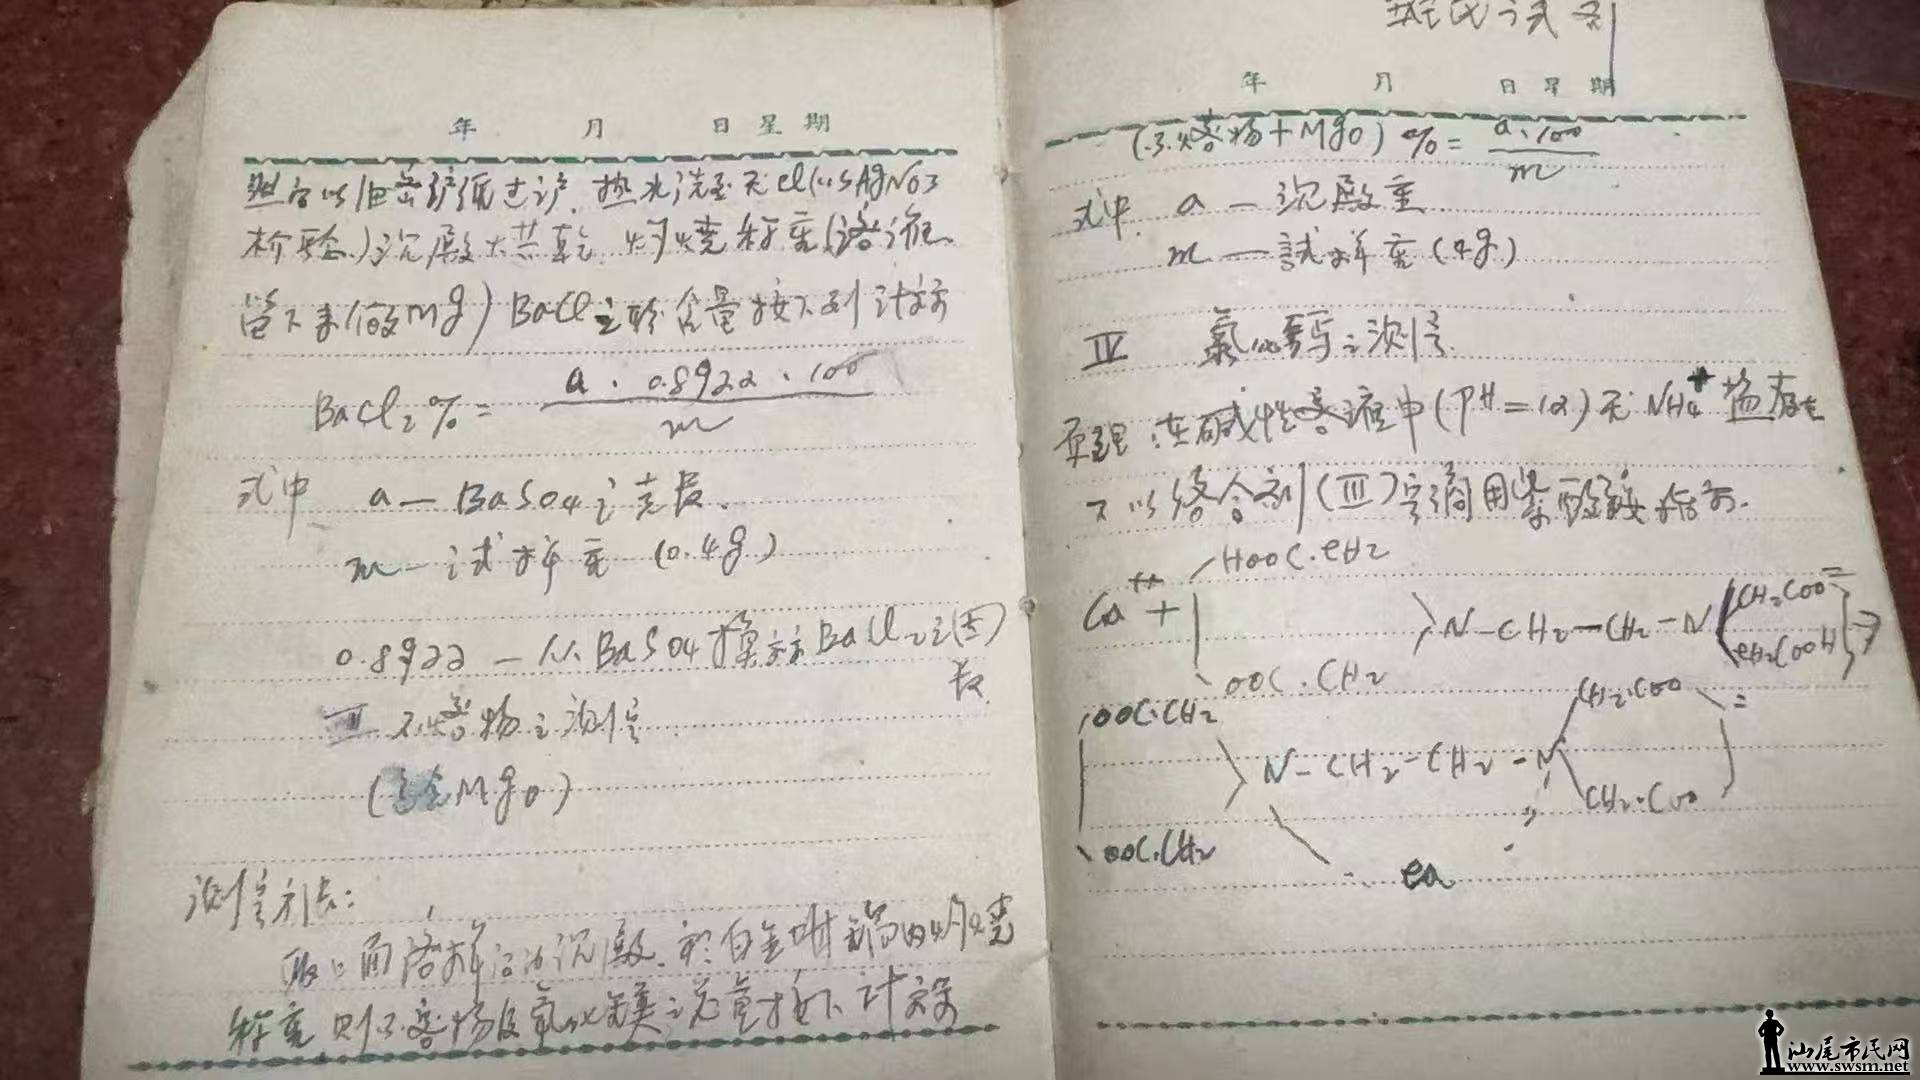 年 月 日 星 期
然后以 密 纸过沪. 热水洗至无Cl(以AgNO3
检验.)沉殿 烘乾. 灼烧 称重(溶液
留下来(做Mg) BaCl 之 含量 按下列 计算
BaCl2% = a · 0.8922 · 100
m
式中 a — BaSO4 之 克
m — 试样重 (0.4g)
0.8922 — 从 BaSO4 换算 BaCl2 之 因
III 不溶物之测定
( MgO)
测定方法:
取 面溶样 沉殿. 于白金坩埚内灼烧
称重 则不溶物及氧化镁之 量按下计算
试剂
年 月 日 星 期
(不溶物 + MgO) % = a · 100
m
式中. a — 沉殿重
m — 試样重 (4g)
IV 氯化钙之测定
原理: 在碱性溶液中(PH = 12) 无 NH4+ 盐存在
下以络合剂(III)字滴用紫脲酸铵指示.
HOOC.CH2
Ca++ + N-CH2-CH2-N CH2COO=
CH2COOH
OOC.CH2
OOC.CH2 CH2.COO =
N-CH2-CH2-N
CH2.COO
OOC.CH2
Ca
汕尾市民网
www.swsm.net